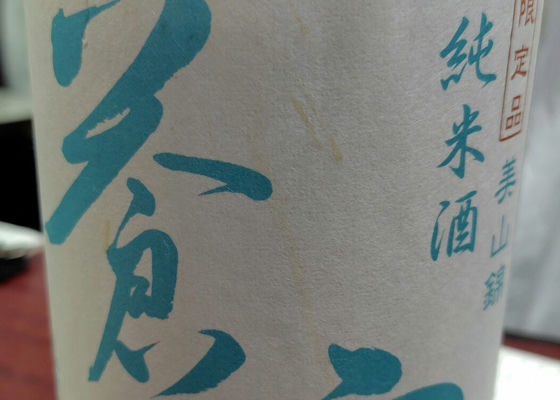 限定品
純米酒
美山錦
蒼